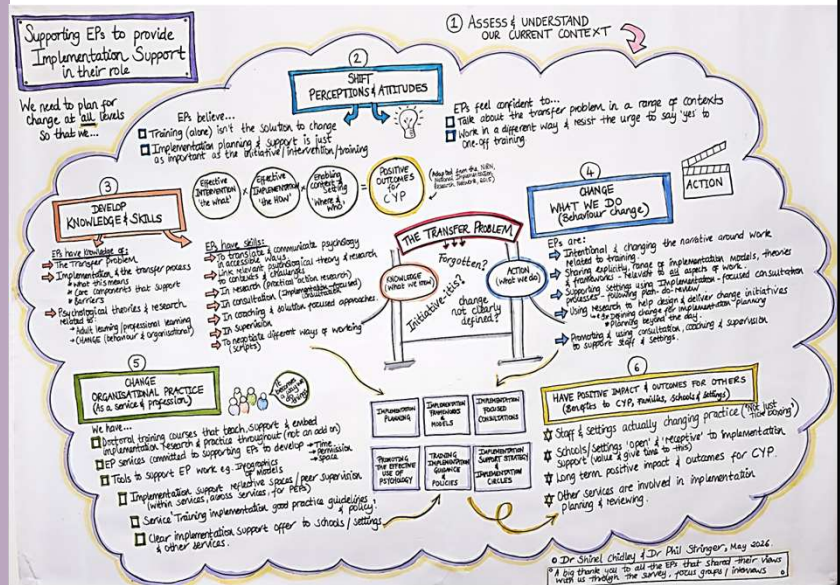 Supporting EPs to provide
Implementation Support
in their role
We need to plan for
change at all levels
so that we...
① ASSESS & UNDERSTAND
OUR CURRENT CONTEXT
②
SHIFT
PERCEPTIONS & ATTITUDES
EPs believe...
Training (alone) isn't the solution to change
Implementation planning & support is just
as important as the initiative/intervention/training
EPs feel confident to...
Talk about the transfer problem in a range of contexts
Work in a different way & resist the urge to say 'yes' to
one-off training.
Effective
INTERVENTION
'the what'
×
Effective
IMPLEMENTATION
'the HOW'
×
Enabling
context &
Setting
'Where &
who'
=
POSITIVE
OUTCOMES
for
CYP
(Adapted from the NIRN,
National Implementation
Research Network, 2015)
③
DEVELOP
KNOWLEDGE & SKILLS
EPs have knowledge of:
The Transfer Problem
Implementation & the transfer process
* what this means
* Core components that support
* Barriers
Psychological theories & research
related to:
* Adult learning/professional learning
* CHANGE (behaviour & organisational)
EPs have skills:
To translate & communicate psychology
in accessible ways.
Link relevant psychological theory & research
to contexts & challenges
In research (practical action research)
In consultation (Implementation-focused
consultation)
In coaching & solution focused approaches.
In Supervision
To negotiate different ways of working
(scripts)
THE TRANSFER PROBLEM
KNOWLEDGE
(What we know)
Forgotten?
ACTION
(What we do)
Initiative-itis?
change
not clearly
defined?
④
CHANGE
WHAT WE DO
(Behaviour change)
ACTION
EPs are:
Intentional & changing the narrative around work
related to training.
Sharing explicitly, range of implementation models, theories
& frameworks - relevant to all aspects of work.
Supporting settings using Implementation-focused consultation
processes - following plan-do-review
Using research to help design & deliver change initiatives
e.g. defining change for implementation planning
* Planning beyond the day.
Promoting & using consultation, coaching & supervision
to support staff & settings.
⑤
CHANGE
ORGANISATIONAL PRACTICE
(As a service & profession)
It
becomes
a way we
do
things
We have...
Doctoral training courses that teach, support & embed
implementation research & practice throughout (not an add on)
EP services committed to supporting EPs to develop → Time
→ permission
→ space
Tools to support EP work e.g. infographics
Models
Implementation support reflective spaces/peer supervision
(within services, across services, for PEPs)
Service Training implementation good practice guidelines
& policy!
Clear implementation support offer to schools/settings
& other services.
IMPLEMENTATION
PLANNING
IMPLEMENTATION
FRAMEWORKS &
MODELS
IMPLEMENTATION
FOCUSED
CONSULTATIONS
PROMOTING
THE EFFECTIVE
USE OF
PSYCHOLOGY
TRAINING
IMPLEMENTATION
GUIDANCE
& POLICIES
IMPLEMENTATION
SUPPORT STRATEGY
&
IMPLEMENTATION
CIRCLES
⑥
HAVE POSITIVE IMPACT & OUTCOMES FOR OTHERS
(Benefits to CYP, Families, Schools & Settings)
Staff & settings actually changing practice ('Not just
tick boxing')
Schools/settings 'open' & 'receptive' to implementation
support (value & give time to this)
Long term positive impact & outcomes for CYP.
Other services are involved in implementation
planning & reviewing.
Dr Shinel Chidley & Dr Phil Stringer, May 2026.
A big thank you to all the EPs that shared their views
with us through the survey, focus groups / interviews